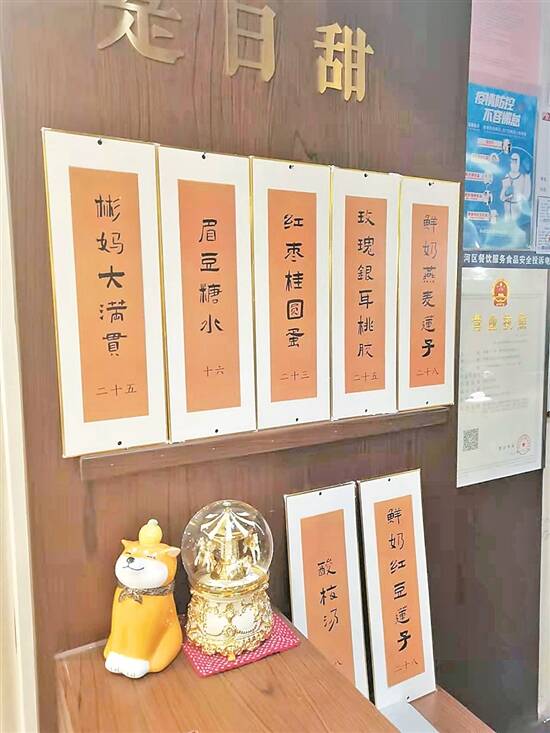 是日甜
彬妈大满貫
二十五
眉豆糖水
十六
红枣桂圆蛋
二十三
玫瑰銀耳桃胶
二十五
鲜奶燕麦莲子
二十八
酸枝汤
八
鲜奶红豆莲子
二十八
疫情防控
不容懈怠
河区餐饮服务食品安全投诉电
营业执照